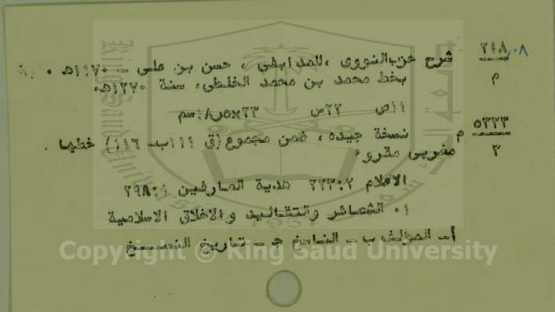 ٢٤٨٫٠٨
م
شرح حزب النووى ، للمدابغى ، حسن بن على – ١١٧٠هـ ٠
بخط محمد بن محمد الخلطى، سنة ١٢٧٠هـ٠
٢٢س
٥٣٢٣
٣
م نسخة جيده ، ضمن مجموع (ق ١١١ب– ١١٦) خطها
مغربى مقروء ٠
الاعلام ٢٢٣:٢ هدية العارفين ٢٩٨:١
١٠ الشعائر والتقاليد والاخلاق الاسلامية
أ– المؤلف ب – الناسخ جـ – تاريخ النسخ
Copyright © King Saud University